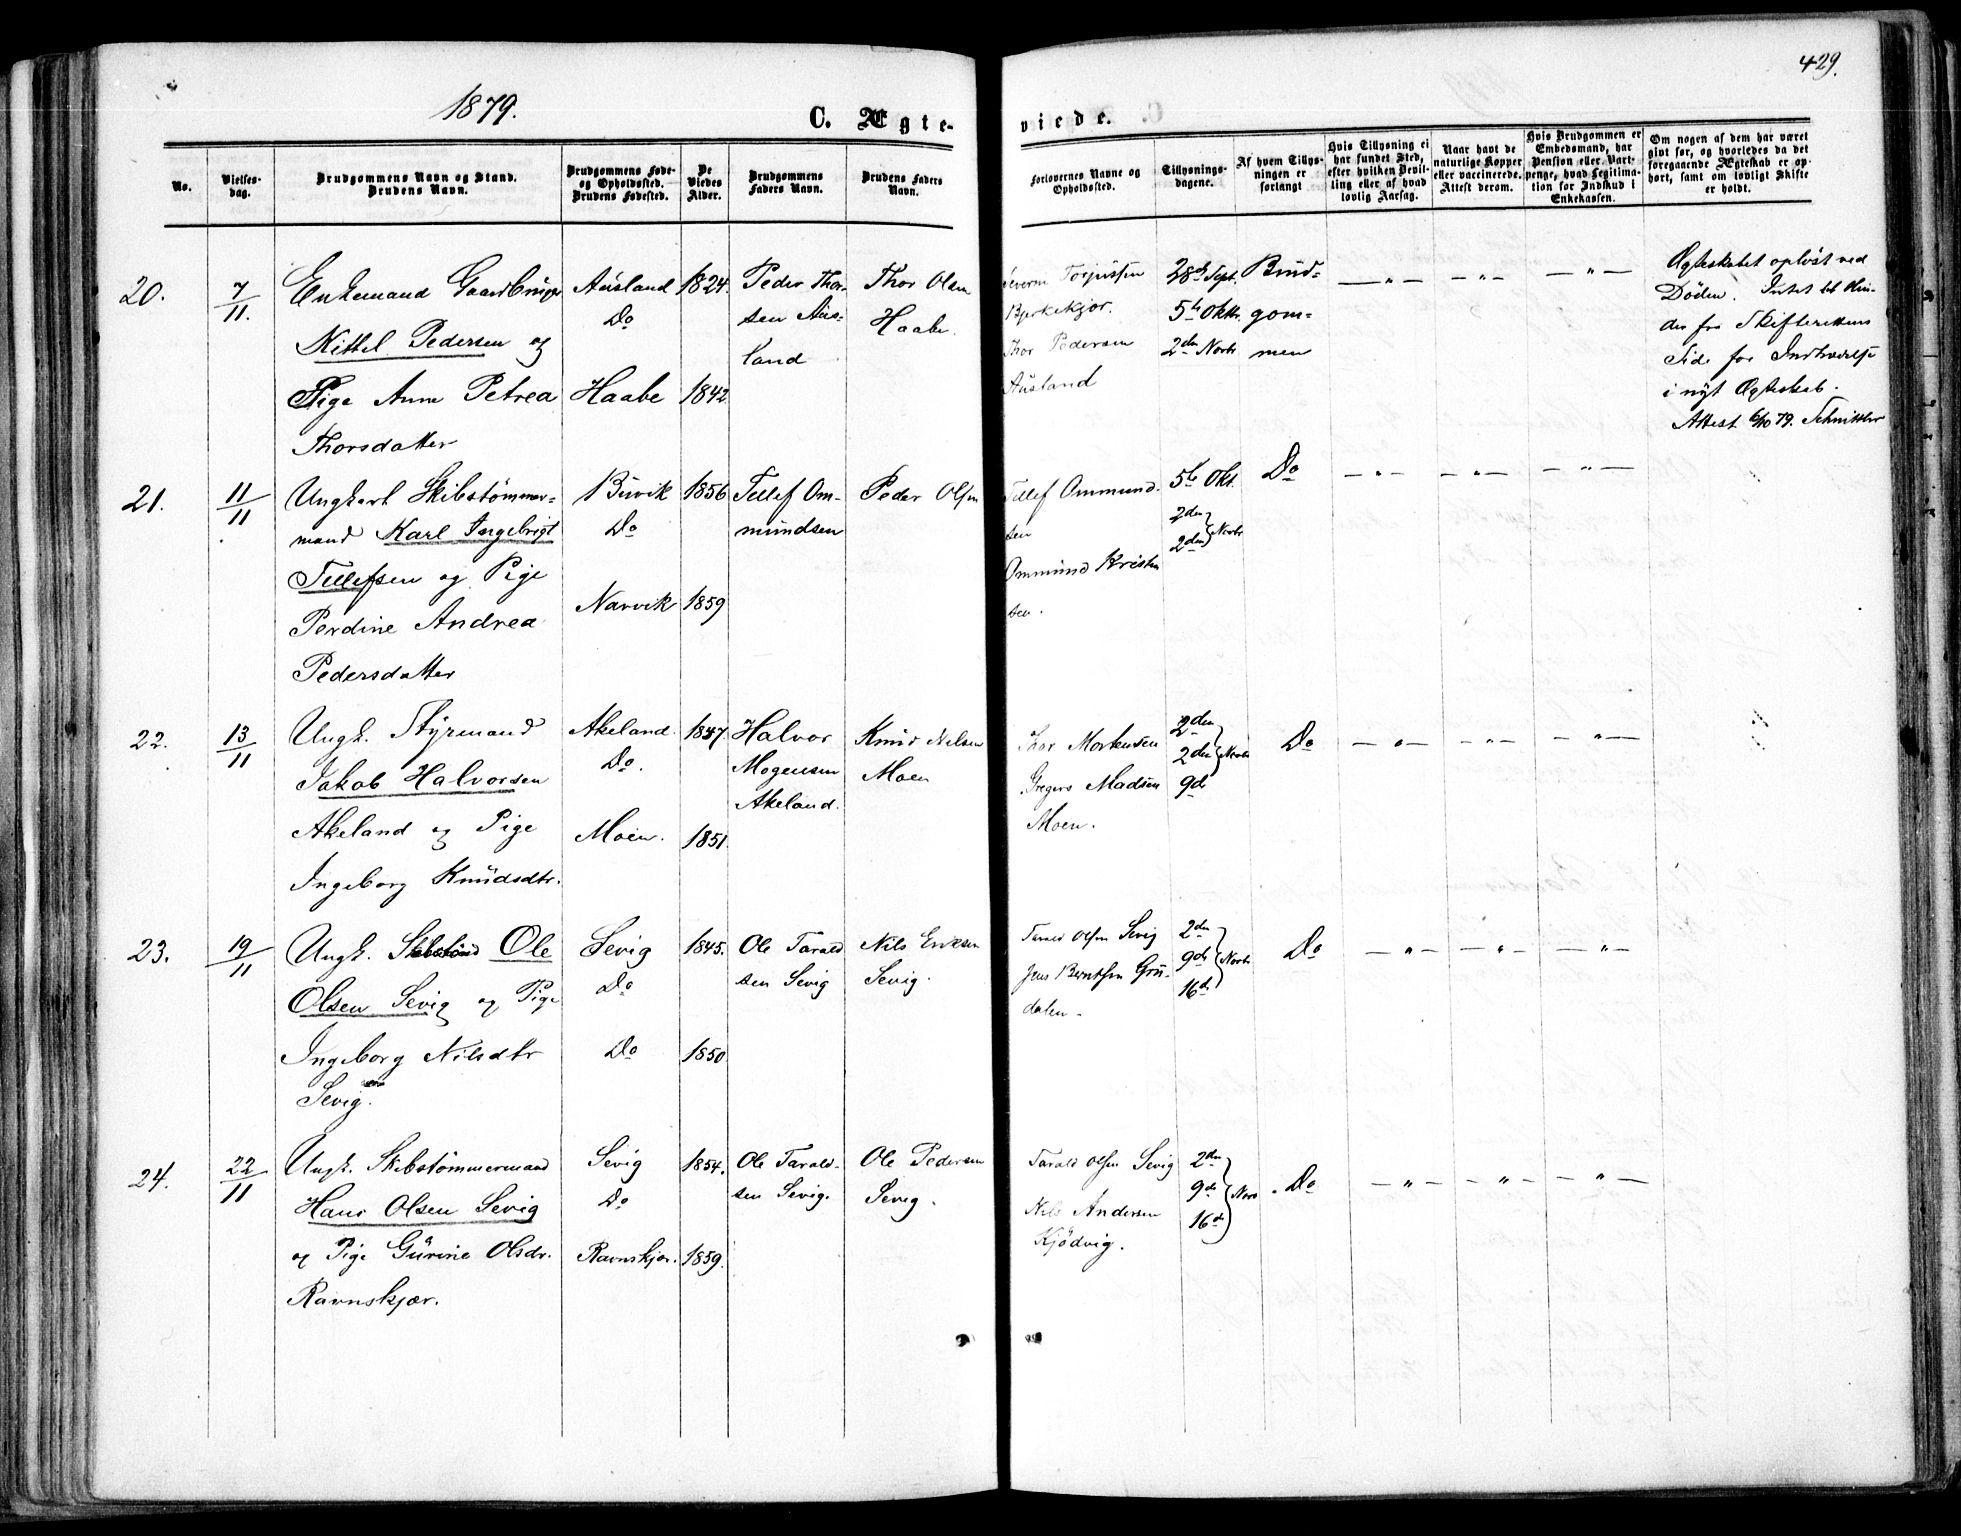 1879.
429.
C. Ægte-
viede.
No.
Vielses-
dag.
Brudgommens Navn og Stand.
Brudens Navn.
Brudgommens Føde-
og Opholdssted.
Brudens Fødested.
De
Viedes
Alder.
Brudgommens
Faders Navn.
Brudens Faders
Navn.
Forlovernes Navne og
Opholdssted.
Tillysnings-
dagene.
Af hvem Tillys-
ningen er
forlangt
Hvis Tillysning ei
har fundet Sted,
efter hvilken Bevil-
ling eller af hvad
lovlig Aarsag.
Naar havt de
naturlige Kopper
eller vaccinerede.
Attest derom.
Hvis Brudgommen er
Embedsmand, har
Pension eller Vart-
penge, hvad Legitima-
tion for Indskud i
Enkekassen.
Om nogen af dem har været
givt før, og hvorledes da det
foregaaende Ægteskab er op-
hørt, samt om lovligt Skifte
er holdt.
20.
7/11.
Enkemand Gaardbruger
Kittel Pedersen og
Pige Anne Petrea
Thorsdatter
Ausland
Do
Haabe
1824.
1842.
Peder Thor-
sen Aus-
land
Thor Olsen
Haabe.
Severin Torjussen
Bjerkekjær.
Thor Pedersen
Ausland
28de Sept.
5te Oktr.
2den Novbr
Brud-
gom-
men
— " —
— " —
— " —
Ægteskabet opløst ved
Døden. Intet til Hin-
der fra Skifterettens
Side for Indtrædelse
i nyt Ægteskab.
Attest 6/10 79. Schnitler
21.
11/11
Ungkarl Skibstømmer-
mand Karl Ingebrigt
Tellefsen og Pige
Perdine Andrea
Pedersdatter
Buvik
Do
Narvik
1856
1859
Tellef Om-
mundsen
Peder Olsen
Tellef Ommund-
sen
Ommund Kristen
sen.
5te Okt.
2den
2den } Novbr
Do
— " —
— " —
— " —
22.
13/11
Ungk. Styrmand
Jakob Halvorsen
Akeland og Pige
Ingeborg Knudsdtr.
Akeland
Do.
Moen.
1847.
1851.
Halvor
Mogensen
Akeland.
Knud Nilsen
Moen
Thor Mortensen
Gregers Madsen
Moen.
2den
2den } Novbr
9de
Do
— " —
— " —
— " —
23.
19/11
Ungk. Ole
Olsen Sevig og Pige
Ingeborg Nilsdtr
Sevig.
Sevig
Do
Do
1845.
1850
Ole Tarald
sen Sevig
Nils Eriksen
Sevig.
Tarald Olsen Sevig
Jens Berntsen Gru-
dalen.
2den
9de } Novbr
16de
Do
— " —
— " —
— " —
24.
22/11
Ungk. Skibstømmermand
Hans Olsen Sevig
og Pige Gurine Olsdr.
Ravnskjær.
Sevig
Do
Ravnskjær.
1854.
1859.
Ole Tarald-
sen Sevig.
Ole Pedersen
Sevig.
Tarald Olsen Sevig
Nils Andersen
Kjødvig.
2den
9de } Novb
16de
Do
— " —
— " —
— " —